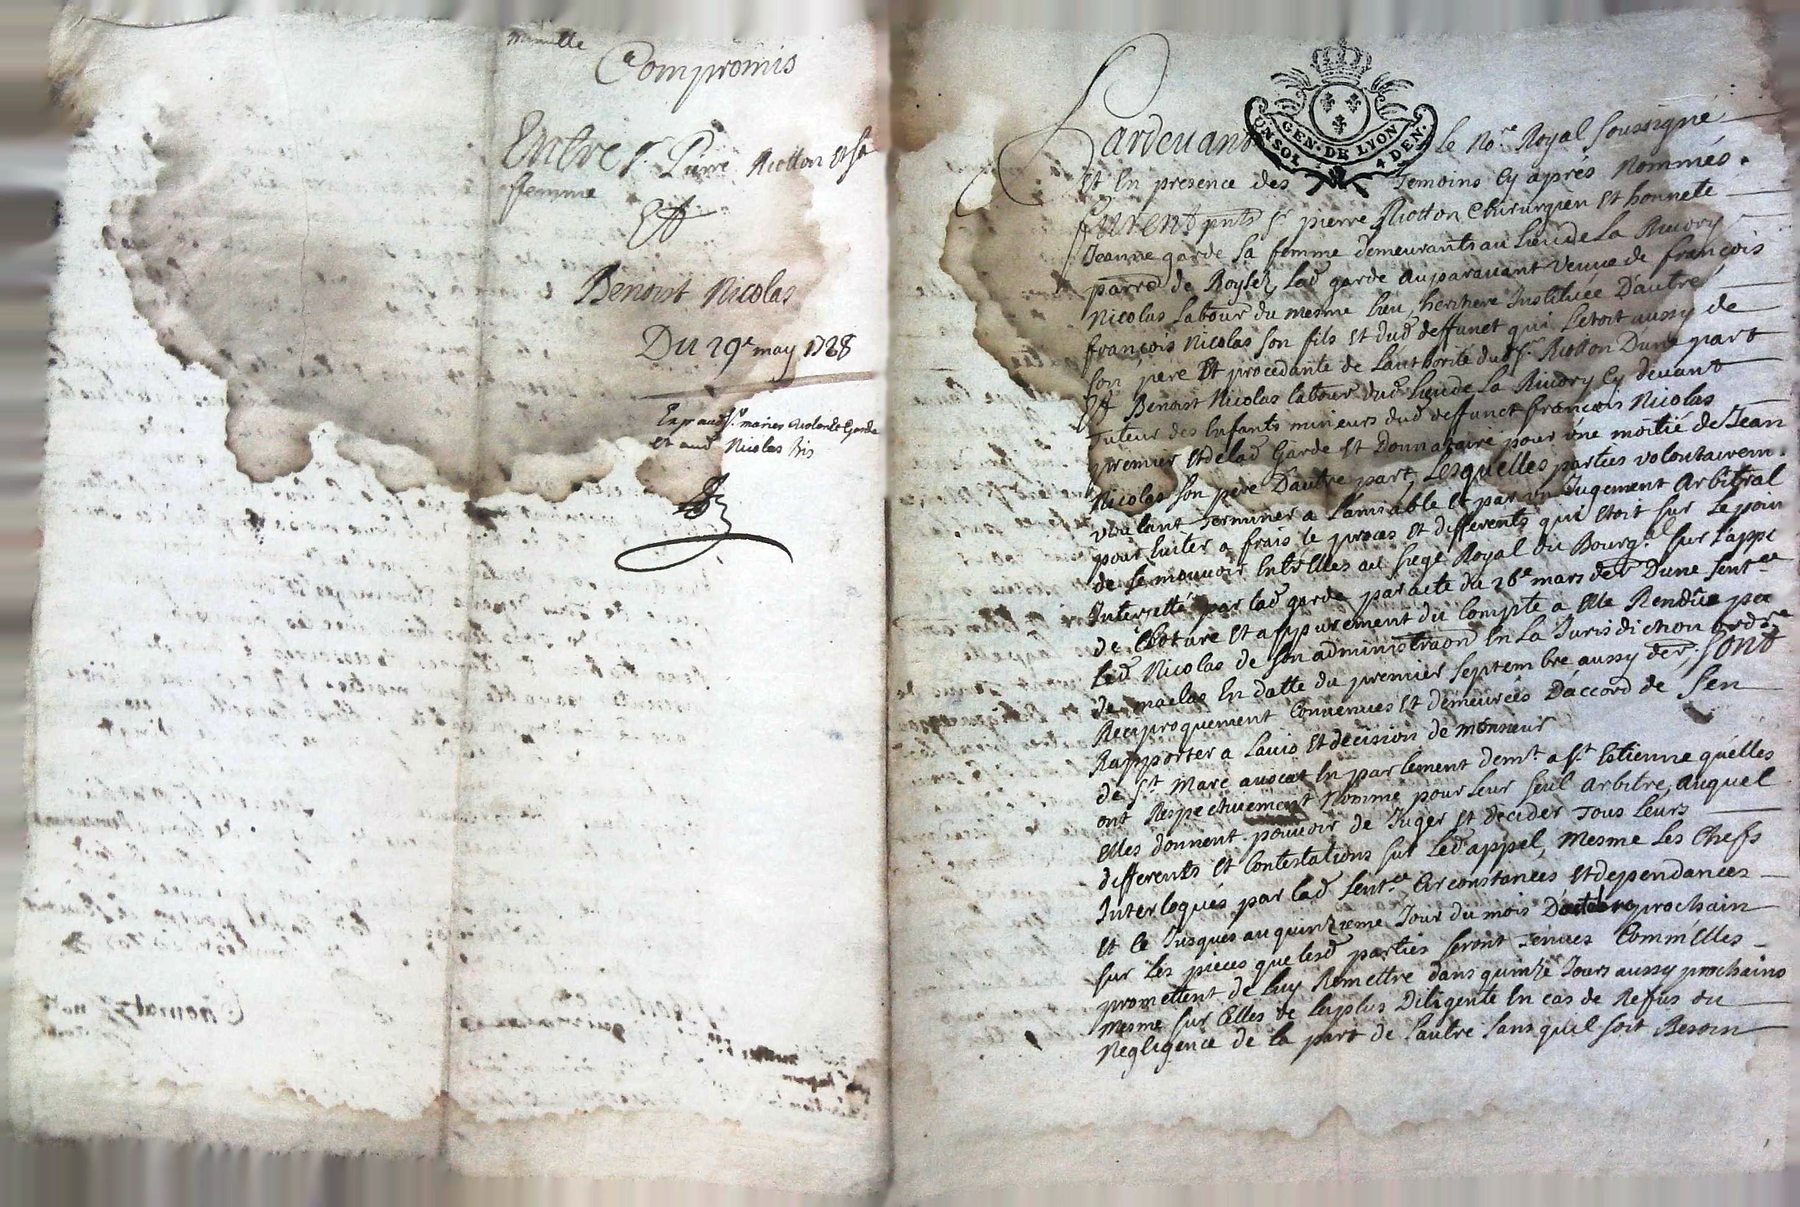 minutte
Compromis
Entre Sr. Pierre Riotton et sa
femme
Et
Benoist Nicolas
Du 29e may 1728
Exp. aud. Sr. maries
et aud. Nicolas
GEN. DE LYON
UN. SOL 4 DEN.
Pardevant le Nore Royal soussigné
et en presence des Temoins cy aprés Nommés.
furent pnts Sr. pierre Riotton chirurgien et honnete
Jeanne garde sa femme demeurants au lieu de La Rivory
parre. de lad. garde auparavant veuve de françois
Nicolas labour. du mesme lieu, heritiere Instituée D'autre
françois Nicolas son fils et dud. deffunct qui L'etoit aussy de
son pere Et procedante de L'authorité dud. Sr. Riotton D'une part
Et Benoist Nicolas labour. dud. lieu de La Rivory cy devant
Tuteur des Enfants mineurs dud. deffunct françois Nicolas
premier et de lad. Garde et Donnataire pour une moitié de Jean
Nicolas son pere D'autre part, Lesquelles parties volontairem.
voulant Terminer a L'amiable Et par un Jugement Arbitral
pour Eviter a frais le proces et differents qui etoit sur Le poin
de se mouvoir Entr'Elles au siege Royal du Bourg. sur L'appe
Interjetté par lad. garde par acte du 26e mars der. D'une sent.ce
de Cloture et appurement du Compte a Elle Rendüe pa
Led. Nicolas de son administraon En La Jurisdiction ordre
de maclas En datte du premier septembre aussy der. sont
Reciproquement Convenues et demeurées D'accord de s'en
Rapporter a L'avis Et decision de monsieur
de St. Marc avocat En parlement demt. a St. Estienne qu'elles
ont Respectivement Nommé pour Leur seul Arbitre, auquel
elles donnent pouvoir de Juger et decider Tous Leurs
differents et Contestations sur Led. appel, mesme Les Chefs
Interloqués par lad. sent.ce Circonstances et dependances
et ce Jusques au quinzieme Jour du mois D'octobre prochain
sur Les pieces que lesd. parties seront Tenues Comm'Elles
promettent de Luy Remettre dans quinze Jours aussy prochains
mesme sur Celles de la plus Diligente En cas de Refus ou
Negligence de la part de L'autre sans qu'il soit Besoin